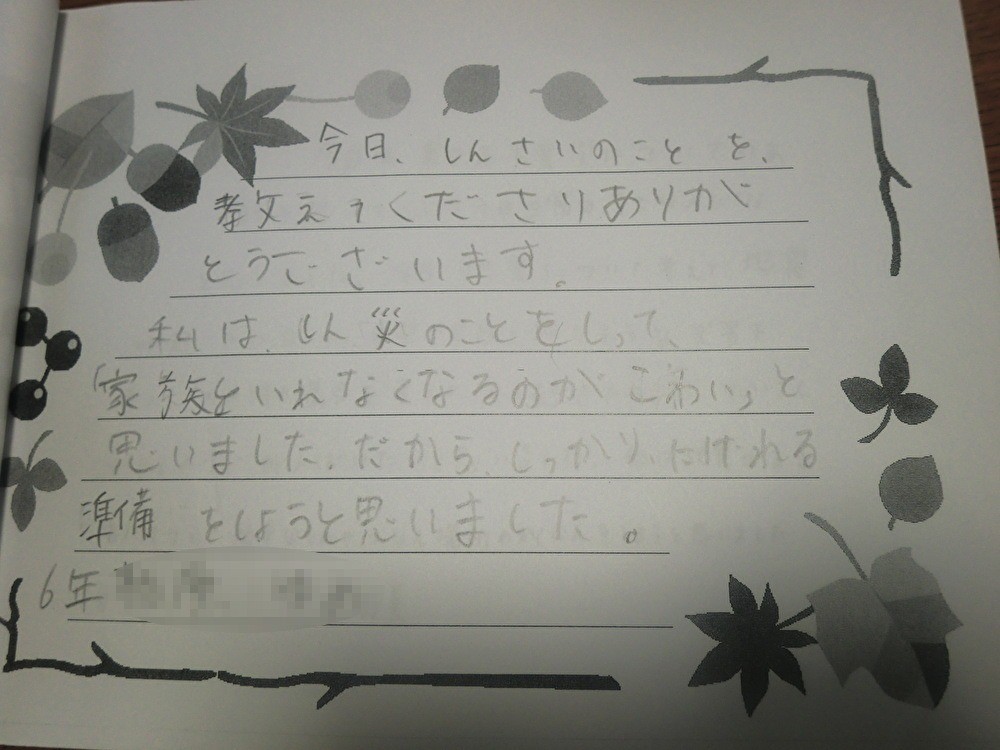 今日、しんさいのことを、
教えてくださりありが
とうございます。
私は、しん災のことをしって、
「家族といれなくなるのがこわい」と
思いました。だから、しっかり、にげれる
準備をしようと思いました。
6年